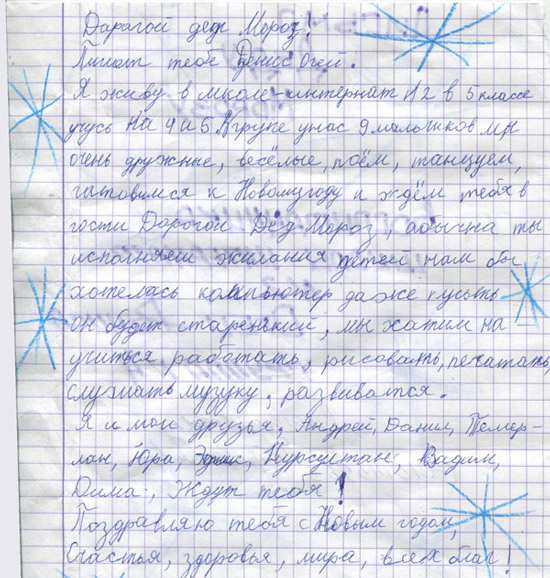 Дарагой дед Мороз!
Пишет тебе Денис Огей.
Я живу в школе-интернат №2 в 5 классе
учусь на 4 и 5. В групе у нас 9 мальчиков мы
очень дружные, весёлые, поём, танцуем,
готовимся к Новому году и ждём тебя в
гости Дорогой Дед Мороз, абычна ты
исполняеш жилания детей нам бы
хотелась компьютер даже пусть
он будет старенький, мы хатим на-
учиться работать, рисовать, печатать,
слушать музуку, развиватся.
Я и мои друзья, Андрей, Данил, Темер-
лан, Юра, Эдик, Нурсултан, Вадим,
Дима, Ждут тебя!
Поздравляю тебя с Новым годом,
Счастья, здоровья, мира, всех благ!